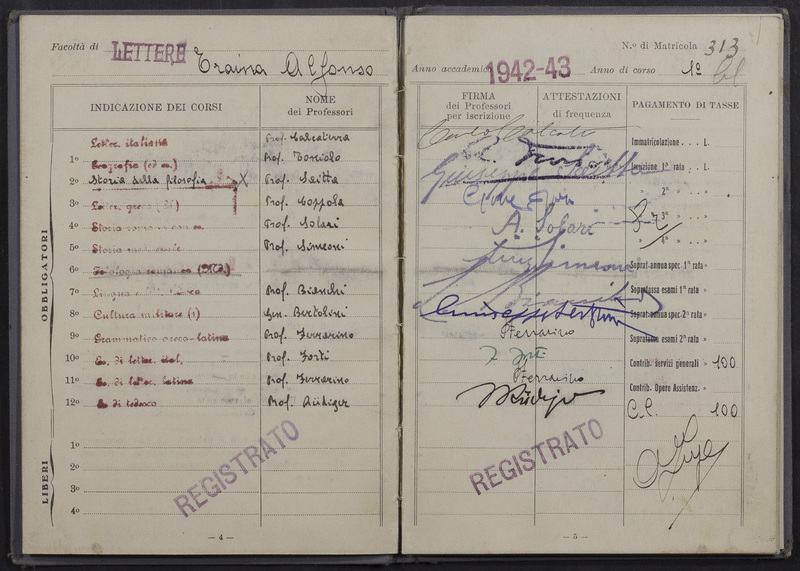 Facoltà di LETTERE Traina Alfonso
INDICAZIONE DEI CORSI
NOME
dei Professori
OBBLIGATORI
Letter. italiana Prof. Calcaterra
1º Geografia Prof. Toniolo
2º Storia della filosofia X Prof. Saitta
3º Letter. greca Prof. Coppola
4º Storia Prof. Solari
5º Storia Prof. Simeoni
6º Filologia romanza
7º Lingua Prof. Bianchi
8º Cultura militare (1) Gen. Bertolini
9º Grammatica greco-latina Prof. Ferrarino
10º Es. di letter. ital. Prof. Forti
11º Es. di letter. latina Prof. Ferrarino
12º Es. di tedesco Prof. Rüdiger
LIBERI
1º
2º
3º
4º
REGISTRATO
— 4 —
N.º di Matricola 313
Anno accademico 1942-43 Anno di corso 1º
FIRMA
dei Professori
per iscrizione
ATTESTAZIONI
di frequenza
PAGAMENTO DI TASSE
Carlo Calcaterra
Immatricolazione . . . L.
Iscrizione 1ª rata . . L.
Giuseppe Saitta
» 2ª » . . »
» 3ª » . . »
A. Solari
» 4ª » . . »
Soprat. annua spec. 1ª rata »
Soprattassa esami 1ª rata »
Soprat. annua spec. 2ª rata »
Soprattassa esami 2ª rata »
Ferrarino
Contrib. servizi generali » 100
Ferrarino
Contrib. Opere Assistenz. »
Rüdiger
C.C. 100
REGISTRATO
— 5 —